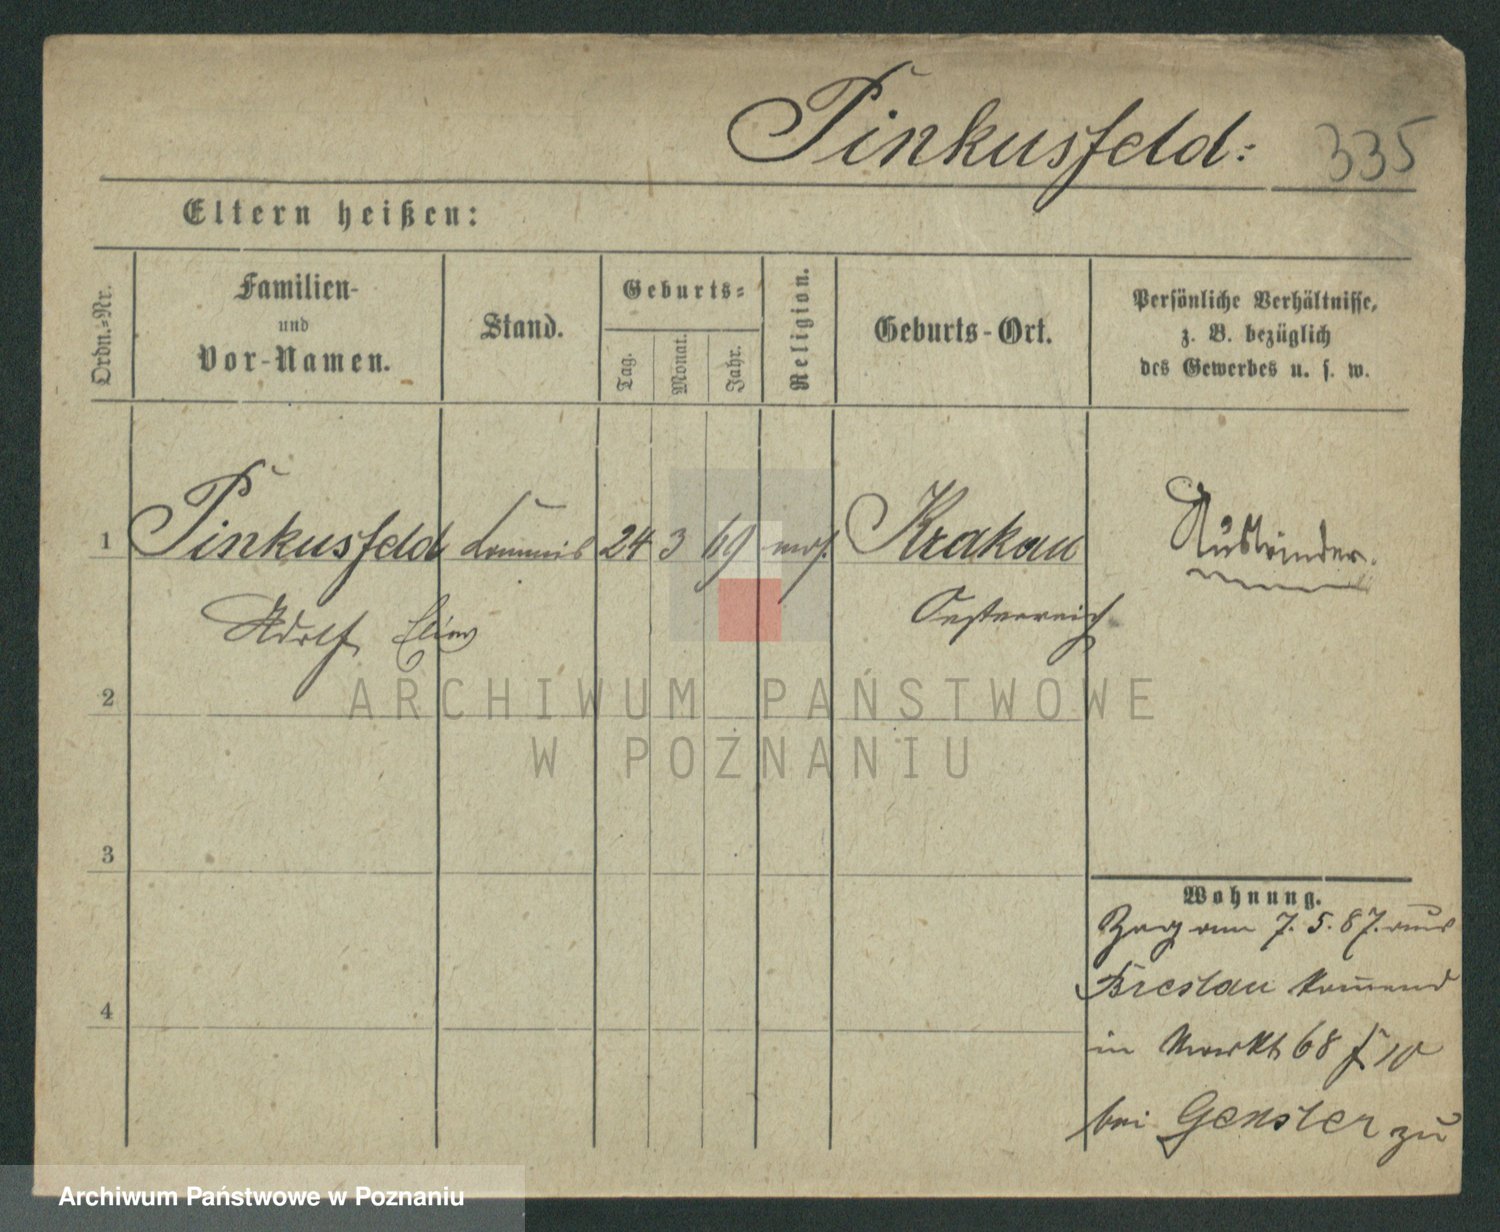 Pinkusfeld:
335
Eltern heißen:
Ordn.-Nr.
Familien-
und
Vor-Namen.
Stand.
Geburts-
Tag.
Monat.
Jahr.
Religion.
Geburts-Ort.
Persönliche Verhältnisse,
z. B. bezüglich
des Gewerbes u. s. w.
1 Pinkusfeld Commis 24 3 69 mos. Krakau Ausländer.
Adolf Oesterreich
2
3
4
Wohnung.
Zog am 7. 5. 87. aus
Breslau kommend
in Markt 68 10
bei Gensler zu
ARCHIWUM PAŃSTWOWE
W POZNANIU
Archiwum Państwowe w Poznaniu